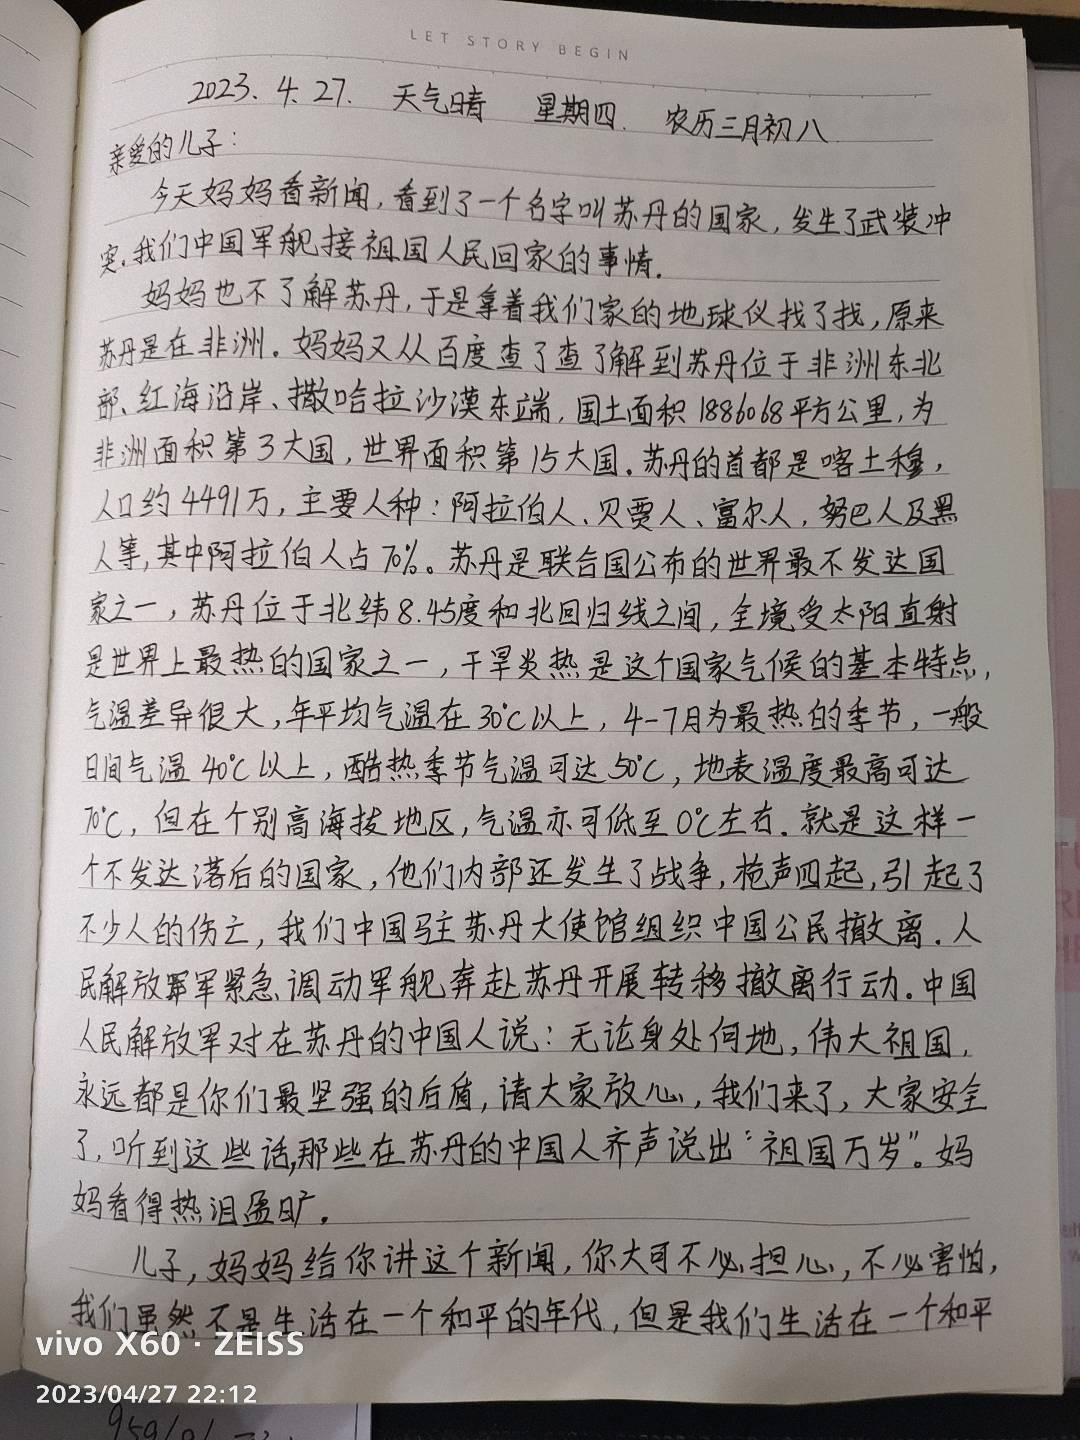 LET STORY BEGIN
2023.4.27. 天气晴 星期四. 农历三月初八
亲爱的儿子:
今天妈妈看新闻,看到了一个名字叫苏丹的国家,发生了武装冲
突.我们中国军舰接祖国人民回家的事情.
妈妈也不了解苏丹,于是拿着我们家的地球仪找了找,原来
苏丹是在非洲。妈妈又从百度查了查了解到苏丹位于非洲东北
部、红海沿岸、撒哈拉沙漠东端,国土面积1886068平方公里,为
非洲面积第3大国,世界面积第15大国.苏丹的首都是喀土穆,
人口约4491万,主要人种:阿拉伯人、贝贾人、富尔人,努巴人及黑
人等,其中阿拉伯人占70%。苏丹是联合国公布的世界最不发达国
家之一,苏丹位于北纬8.45度和北回归线之间,全境受太阳直射
是世界上最热的国家之一,干旱炎热是这个国家气候的基本特点,
气温差异很大,年平均气温在30℃以上,4-7月为最热的季节,一般
日间气温40℃以上,酷热季节气温可达50℃,地表温度最高可达
70℃,但在个别高海拔地区,气温亦可低至0℃左右.就是这样一
个不发达落后的国家,他们内部还发生了战争,枪声四起,引起了
不少人的伤亡,我们中国驻苏丹大使馆组织中国公民撤离.人
民解放军紧急调动军舰奔赴苏丹开展转移撤离行动.中国
人民解放军对在苏丹的中国人说:无论身处何地,伟大祖国,
永远都是你们最坚强的后盾,请大家放心,我们来了,大家安全
了,听到这些话,那些在苏丹的中国人齐声说出“祖国万岁”。妈
妈看得热泪盈眶.
儿子,妈妈给你讲这个新闻,你大可不必担心,不必害怕,
我们虽然不是生活在一个和平的年代,但是我们生活在一个和平
vivo X60 · ZEISS
2023/04/27 22:12